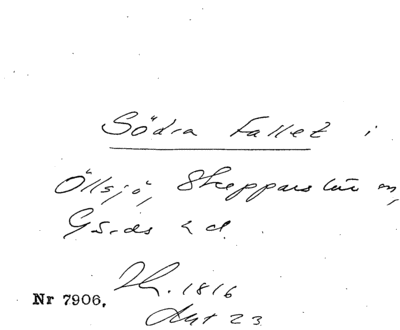 Södra Fallet i
Öllsjö, Skepparslöv sn,
Gärds hd.
Nr 7906.
1816
Akt 23